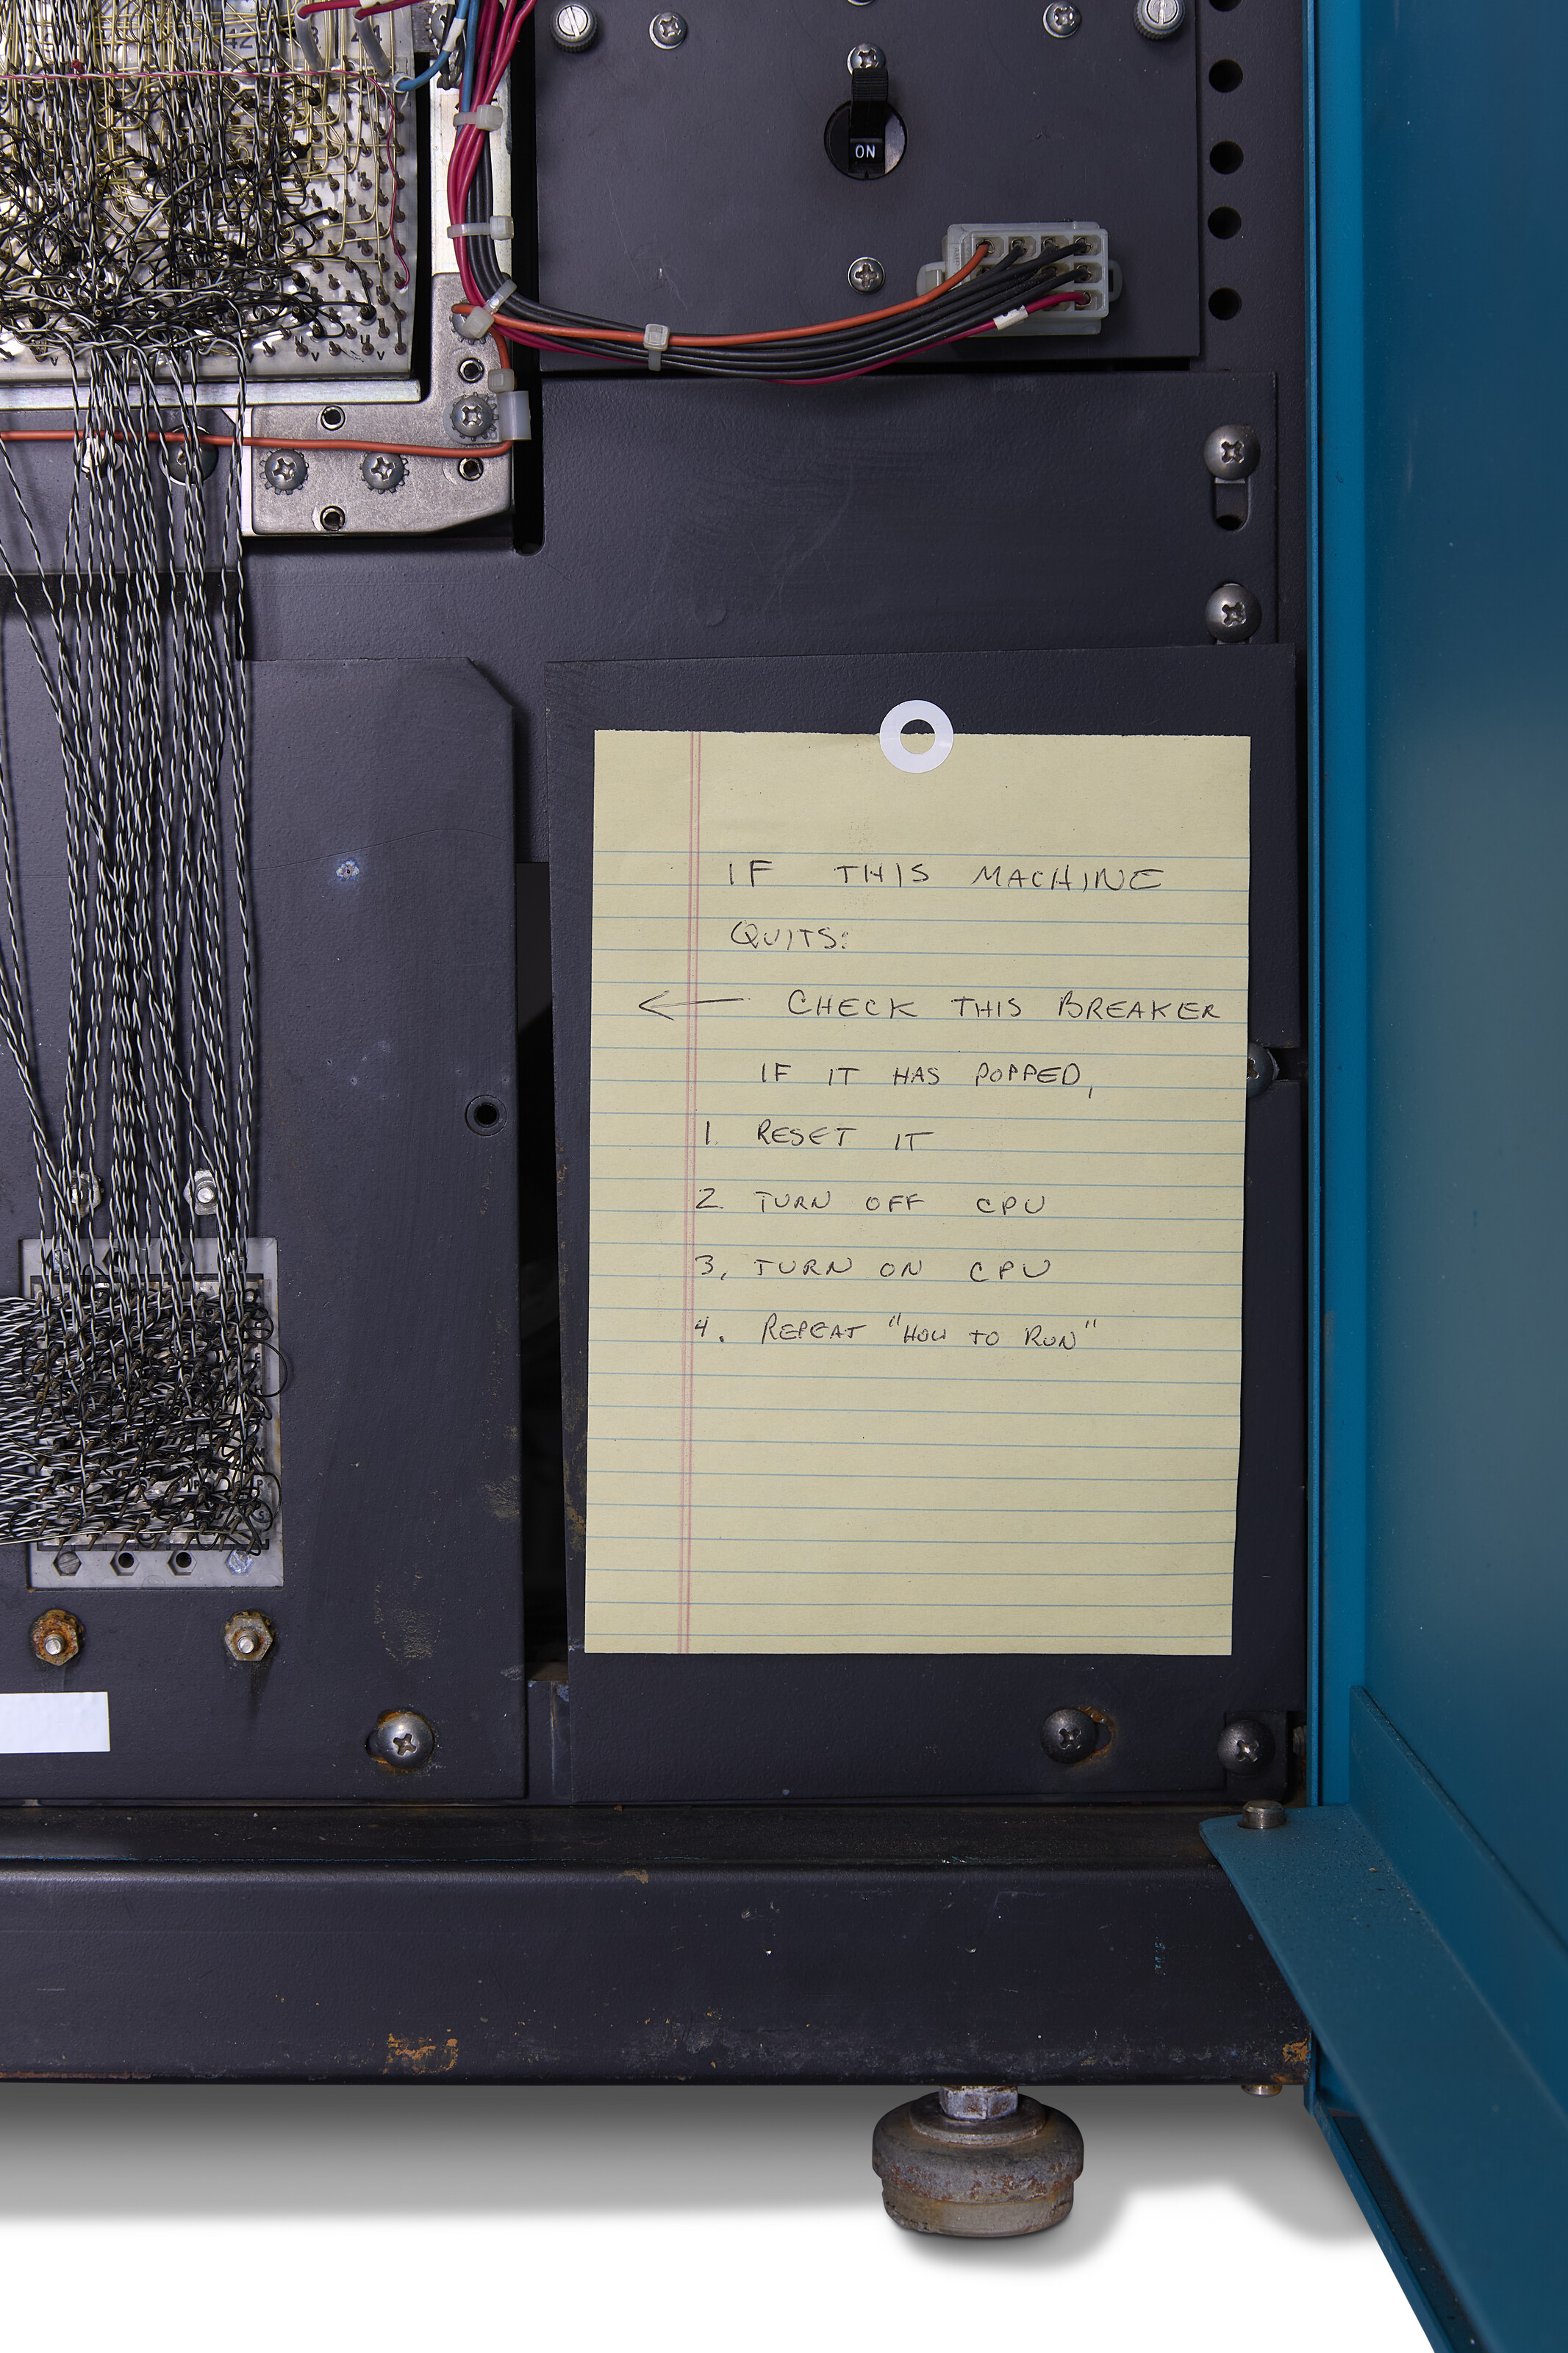 42
ON
IF THIS MACHINE
QUITS:
← CHECK THIS BREAKER
IF IT HAS POPPED,
1. RESET IT
2. TURN OFF CPU
3, TURN ON CPU
4. REPEAT "HOW TO RUN"